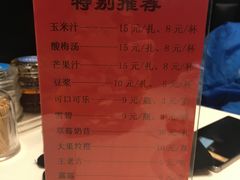 特别推荐
玉米汁——15元/扎、8元/杯
酸梅汤——15元/扎、8元/杯
芒果汁——15元/扎、8元/杯
豆浆——10元/扎、8元/杯
可口可乐——9元/
雪碧——9元/
草莓奶昔
大果粒橙
王老吉